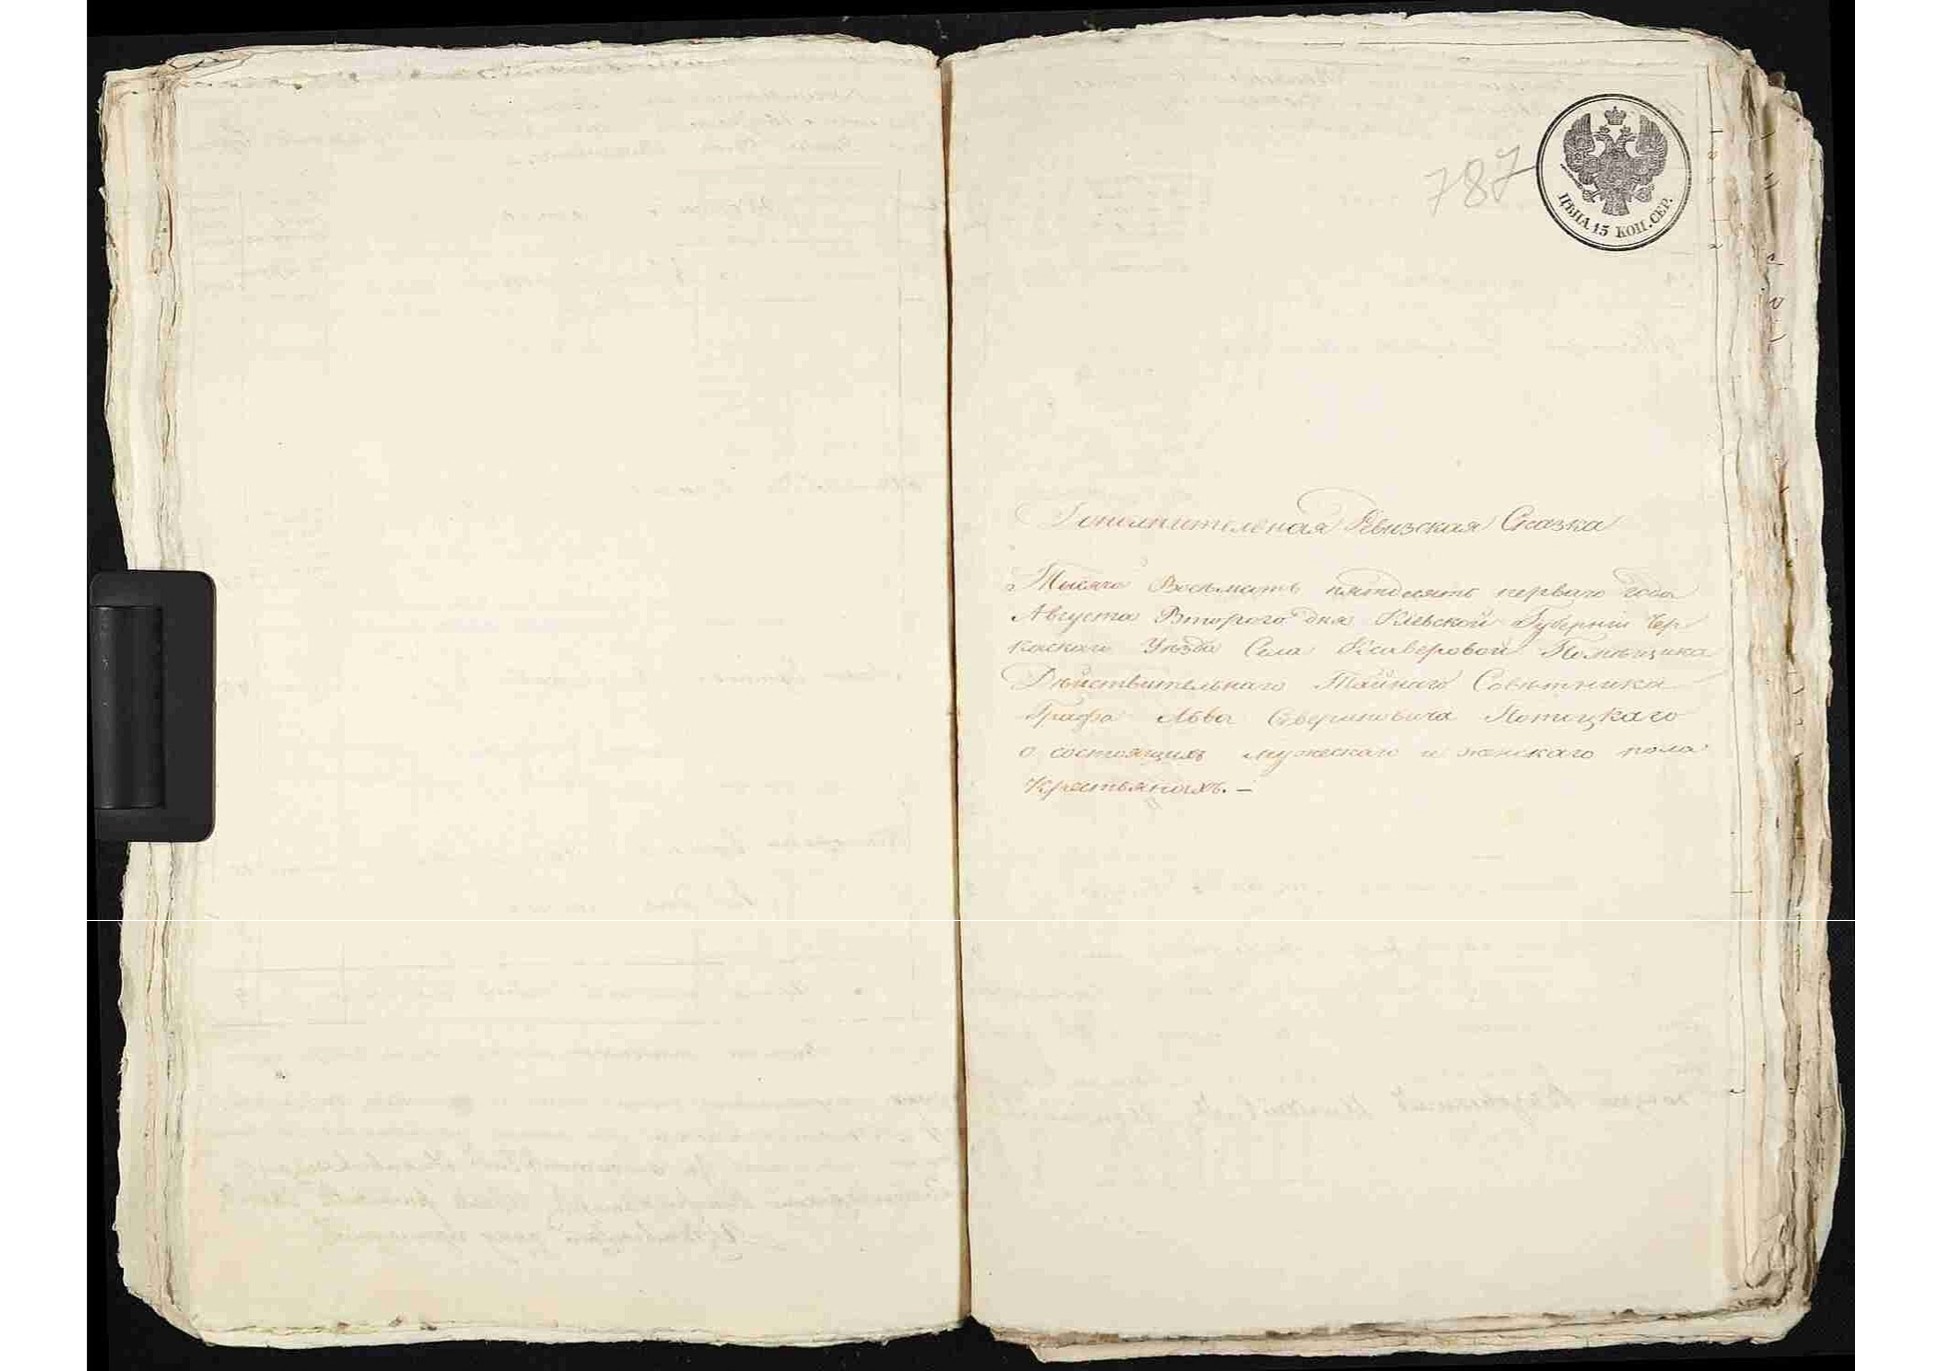 787
ЦѢНА 15 КОП. СЕР.
Дополнительная Ревизская Сказка
Тысяча Восемьсотъ пятдесятъ перваго года
Августа Втораго дня Кіевской Губерніи Чер
каскаго Уѣзда Села Ксаверовой Помѣщика
Дѣйствительнаго Тайнаго Совѣтника
Графа Льва Севериновича Потоцкаго
о состоящихъ мужескаго и женскаго пола
Крестьянахъ. —